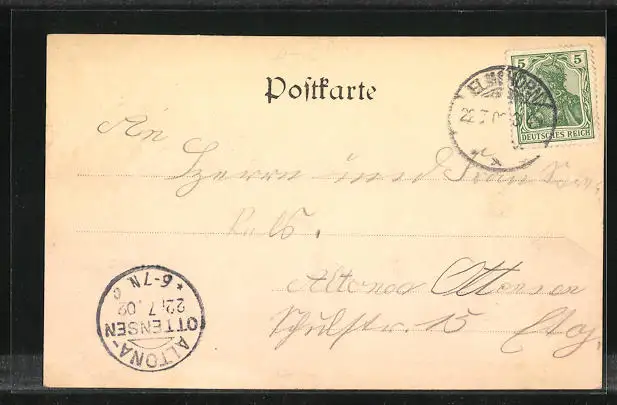 Postkarte
5 5
DEUTSCHES REICH
ELMSHORN
An
Herrn und Frau
Altona Ottensen
Schulstr. 15 Etg.
ALTONA-
OTTENSEN
22.7.02
*6-7N